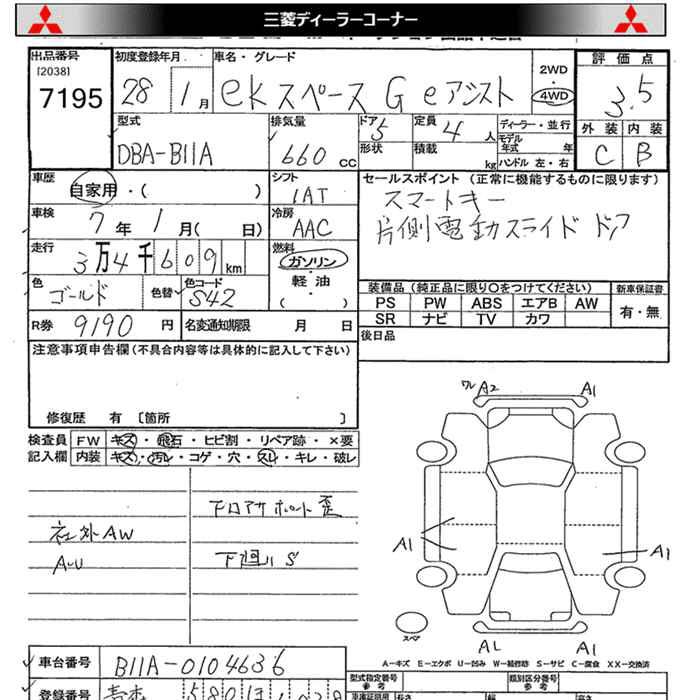 三菱ディーラーコーナー
出品番号
[2038]
7195
初度登録年月
28 1月
車名・グレード
ekスペース G eアシスト
2WD
4WD
評価点
3.5
外装 内装
C B
型式
DBA-B11A
排気量
660 cc
ドア 5
形状
定員 4人
積載 kg
ディーラー・並行
モデル年式 年
ハンドル 左・右
車歴
自家用・( )
シフト
IAT
セールスポイント (正常に機能するものに限ります)
スマートキー
片側電動スライドドア
車検
7年 1月( 日)
冷房
AAC
走行
3万4千609km
燃料
ガソリン・軽油・( )
色
ゴールド
色替
色コード
S42
装備品 (純正品に限り〇をつけてください)
新車保証書
PS PW ABS エアB AW
SR ナビ TV カワ
有・無
R券 9190円
名変通知期限 月 日
後日品
注意事項申告欄(不具合内容等は具体的に記入して下さい)
修復歴 有 [箇所 ]
検査員記入欄
FW キズ・飛石・ヒビ割・リペア跡・×要
内装 キズ・汚レ・コゲ・穴・スレ・キレ・破レ
社外AW
AU
下ロアサポート歪
下廻りS
ワレ A2 A1
A1 A1
スペア
A1
A-キズ E-エクボ U-凹み W-補修跡 S-サビ C-腐食 XX-交換済
車台番号 B11A-0104636
型式指定番号
参考
類別区分番号
参考
登録番号
長さ
幅
高さ